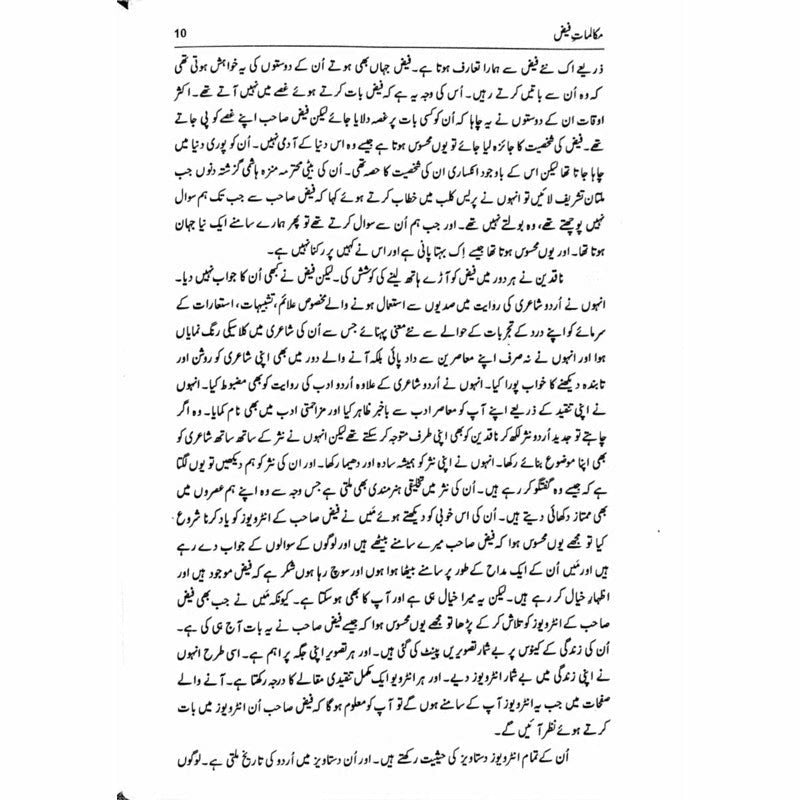 مکالماتِ فیض
10
ذریعے اک نئے فیض سے ہمارا تعارف ہوتا ہے۔ فیض جہاں بھی ہوتے اُن کے دوستوں کی یہ خواہش ہوتی تھی
کہ وہ اُن سے باتیں کرتے رہیں۔ اُس کی وجہ یہ ہے کہ فیض بات کرتے ہوئے غصے میں نہیں آتے تھے۔ اکثر
اوقات ان کے دوستوں نے یہ چاہا کہ اُن کو کسی بات پر غصہ دلایا جائے لیکن فیض صاحب اپنے غصے کو پی جاتے
تھے۔ فیض کی شخصیت کا جائزہ لیا جائے تو یوں محسوس ہوتا ہے جیسے وہ اس دنیا کے آدمی نہیں۔ اُن کو پوری دنیا میں
چاہا جاتا تھا لیکن اس کے باوجود انکساری ان کی شخصیت کا حصہ تھی۔ اُن کی بیٹی محترمہ منزہ ہاشمی گزشتہ دنوں جب
ملتان تشریف لائیں تو انہوں نے پریس کلب میں خطاب کرتے ہوئے کہا کہ فیض صاحب سے جب تک ہم سوال
نہیں پوچھتے تھے، وہ بولتے نہیں تھے۔ اور جب ہم اُن سے سوال کرتے تھے تو پھر ہمارے سامنے ایک نیا جہان
ہوتا تھا۔ اور یوں محسوس ہوتا تھا جیسے اِک بہتا پانی ہے اور اس نے کہیں پر رکنا نہیں ہے۔
ناقدین نے ہر دور میں فیض کو آڑے ہاتھ لینے کی کوشش کی۔ لیکن فیض نے کبھی اُن کا جواب نہیں دیا۔
انہوں نے اُردو شاعری کی روایت میں صدیوں سے استعمال ہونے والے مخصوص علائم، تشبیہات، استعارات کے
سرمائے کو اپنے درد کے تجربات کے حوالے سے نئے معنی پہنائے جس سے اُن کی شاعری میں کلاسیکی رنگ نمایاں
ہوا اور انہوں نے نہ صرف اپنے معاصرین سے داد پائی بلکہ آنے والے دور میں بھی اپنی شاعری کو روشن اور
تابندہ دیکھنے کا خواب پورا کیا۔ انہوں نے اُردو شاعری کے علاوہ اُردو ادب کی روایت کو بھی مضبوط کیا۔ انہوں
نے اپنی تنقید کے ذریعے اپنے آپ کو معاصر ادب سے باخبر ظاہر کیا اور مزاحمتی ادب میں بھی نام کمایا۔ وہ اگر
چاہتے تو جدید اُردو نثر لکھ کر ناقدین کو بھی اپنی طرف متوجہ کر سکتے تھے لیکن انہوں نے نثر کے ساتھ ساتھ شاعری کو
بھی اپنا موضوع بنائے رکھا۔ انہوں نے اپنی نثر کو ہمیشہ سادہ اور دھیما رکھا۔ اور ان کی نثر کو ہم دیکھیں تو یوں لگتا
ہے کہ جیسے وہ گفتگو کر رہے ہیں۔ اُن کی نثر میں تخلیقی ہنرمندی بھی ملتی ہے جس وجہ سے وہ اپنے ہم عصروں میں
بھی ممتاز دکھائی دیتے ہیں۔ اُن کی اس خوبی کو دیکھتے ہوئے مَیں نے فیض صاحب کے انٹرویوز کو یاد کرنا شروع
کیا تو مجھے یوں محسوس ہوا کہ فیض صاحب میرے سامنے بیٹھے ہیں اور لوگوں کے سوالوں کے جواب دے رہے
ہیں اور مَیں اُن کے ایک مداح کے طور پر سامنے بیٹھا ہوا ہوں اور سوچ رہا ہوں شکر ہے کہ فیض موجود ہیں اور
اظہارِ خیال کر رہے ہیں۔ لیکن یہ میرا خیال ہی ہے اور آپ کا بھی ہو سکتا ہے۔ کیونکہ مَیں نے جب بھی فیض
صاحب کے انٹرویوز کو تلاش کر کے پڑھا تو مجھے یوں محسوس ہوا کہ جیسے فیض صاحب نے یہ بات آج ہی کی ہے۔
اُن کی زندگی کے کینوس پر بے شمار تصویریں پینٹ کی گئی ہیں۔ اور ہر تصویر اپنی جگہ پر اہم ہے۔ اسی طرح انہوں
نے اپنی زندگی میں بے شمار انٹرویوز دیے۔ اور ہر انٹرویو ایک مکمل تنقیدی مقالے کا درجہ رکھتا ہے۔ آنے والے
صفحات میں جب یہ انٹرویوز آپ کے سامنے ہوں گے تو آپ کو معلوم ہو گا کہ فیض صاحب اُن انٹرویوز میں بات
کرتے ہوئے نظر آئیں گے۔
اُن کے تمام انٹرویوز دستاویز کی حیثیت رکھتے ہیں۔ اور اُن دستاویز میں اُردو کی تاریخ ملتی ہے۔ لوگوں